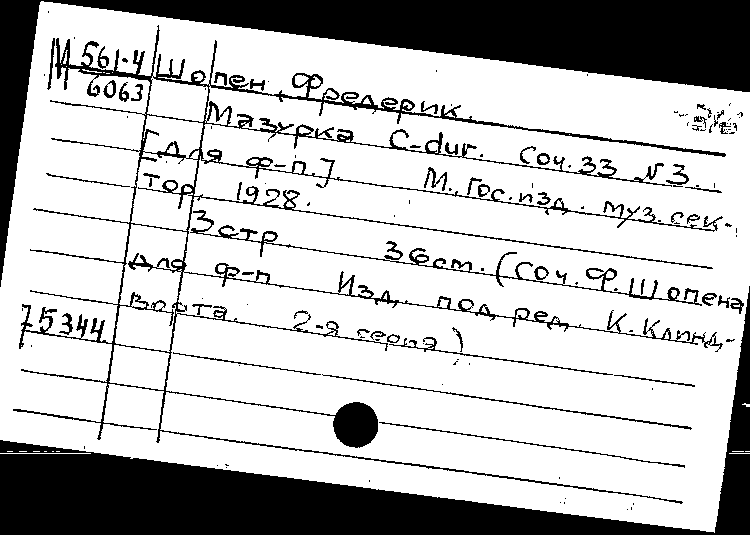 М 561-4 Шопен, Фредерик.
6063
Мазурка C-dur. Соч. 33 № 3.
[Для ф-п.]. М., Гос. изд. муз. сек-
тор. 1928.
3 стр. 36 ст. (Соч. Ф. Шопена
для ф-п. Изд. под ред. К. Клинд-
ворта. 2-я серия)
75344